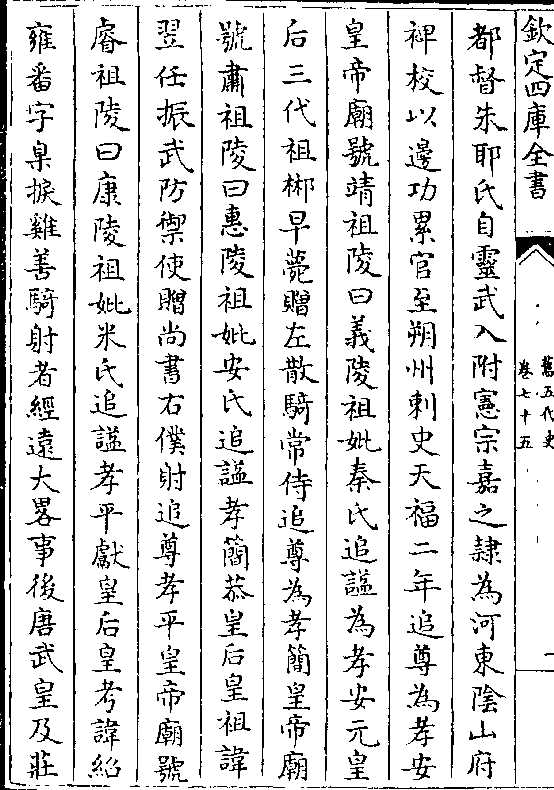 欽定四庫全書
舊五代史
卷七十五
一
都督朱耶氏自靈武入附憲宗嘉之隷為河東陰山府
裨校以邊功累官至朔州刺史天福二年追尊為孝安
皇帝廟號靖祖陵曰義陵祖妣秦氏追諡為孝安元皇
后三代祖郴早薨贈左散騎常侍追尊為孝簡皇帝廟
號肅祖陵曰惠陵祖妣安氏追諡孝簡恭皇后皇祖諱
翌任振武防禦使贈尚書右僕射追尊孝平皇帝廟號
睿祖陵曰康陵祖妣米氏追諡孝平獻皇后皇考諱紹
雍番字臬捩雞善騎射者經遠大畧事後唐武皇及莊